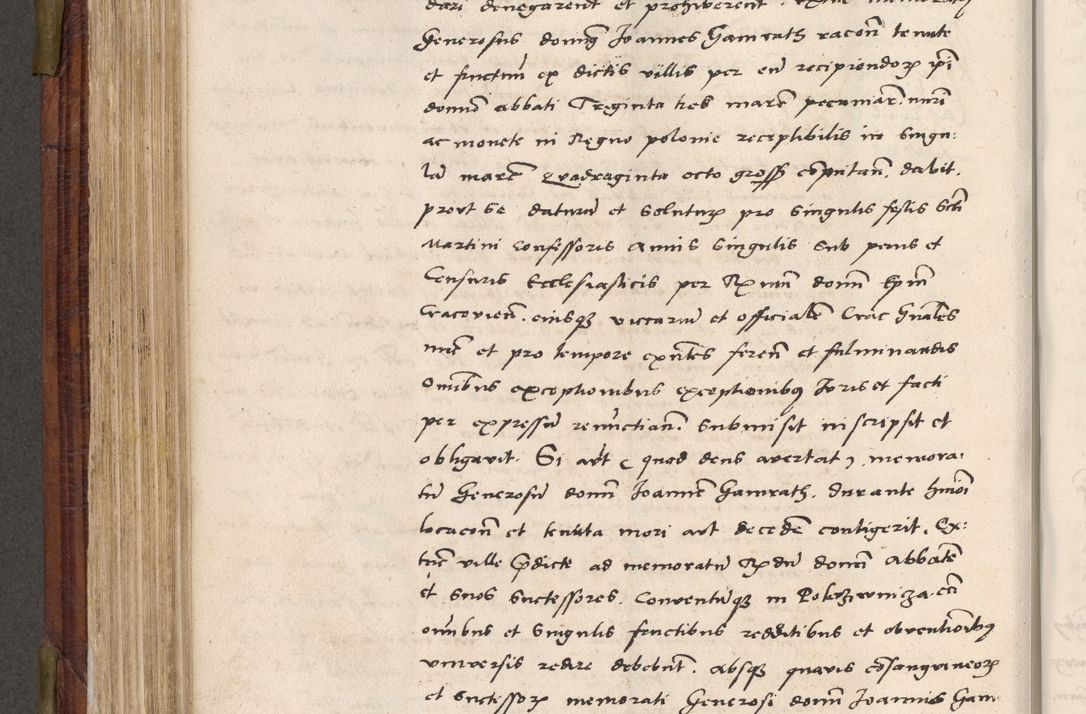 dari denegarent et prohiberent
Generosus domⁿ Joannes Gamrath racoñ tenute
et fructuũ ex dictis villis per eũ recipiendoꝝ ip̃i
domño abbati Treginta tres marc̃ pecuniaꝝ. nũri
ac monete in Regno polonie receptibilis in Singu:
la marc̃ Quadraginta octo gross̃ cõputañ. dabit.
prout se daturũ et soluturꝝ pro singulis festis Scti
Martini Confessoris Annis Singulis Sub penis et
Censuris Ecclesiasticis per Rx̃mũ domñ Ep̃m
Cracovieñ. eiusqꝫ viccariũ et officialem̃ Crac Gñales
nũc et pro tempore exñtes fereñ et fulminandis
Omĩbus exceptionibus exceptionibꝫ Juris et facti
per expressã renũctiañ. Submisit inscripsit et
obligavit. Si aũt ( quod deus avertat ) memora:
tũ Generosũ domñ Joannem̃ Gamrath. durante hm̃oi
locacoñ et tenuta mori aut decedẽ contigerit. Ex:
tũc ville p̃dicte ad memoratũ Rx̃dũ domñ Abbatẽ
et suos Successores. Conventũqꝫ in Pokrziwnicza. cũ
omĩbus et Singulis fructibus redditibus et obventionĩbꝫ
universis redire debebũt. absqꝫ quavis cõsanguineoꝝ
et Successoꝝ memorati Generosi domñ Joannis Gam